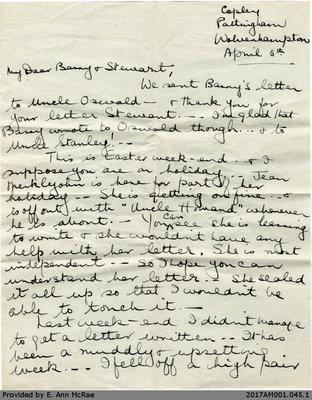 Copley
Pattingham
Wolverhampton
April 5th
My Dear Barry & Stewart,
We sent Barry's letter
to Uncle Oswald – & thank you for
your letter Stewart. – – I'm glad that
Barry wrote to Oswald though... & to
Uncle Stanley...
This is Easter week-end.. & I
suppose you are on holiday – Jean
Meiklejohn is here for part of her
holiday – – She is getting on fine.. &
is off out with "Uncle Howard" whenever
he is about. – You can see she is learning
to write & she wouldn't have any
help with her letter. She is most
independent – – so I hope you can
understand her letter.. She sealed
it all up so that I wouldn't be
able to touch it. –
Last week-end I didn't manage
to get a letter written – – It has
been a muddly & upsetting
week. – – I fell off a high pair
Provided by E. Ann McRae
2017AM001.045.1